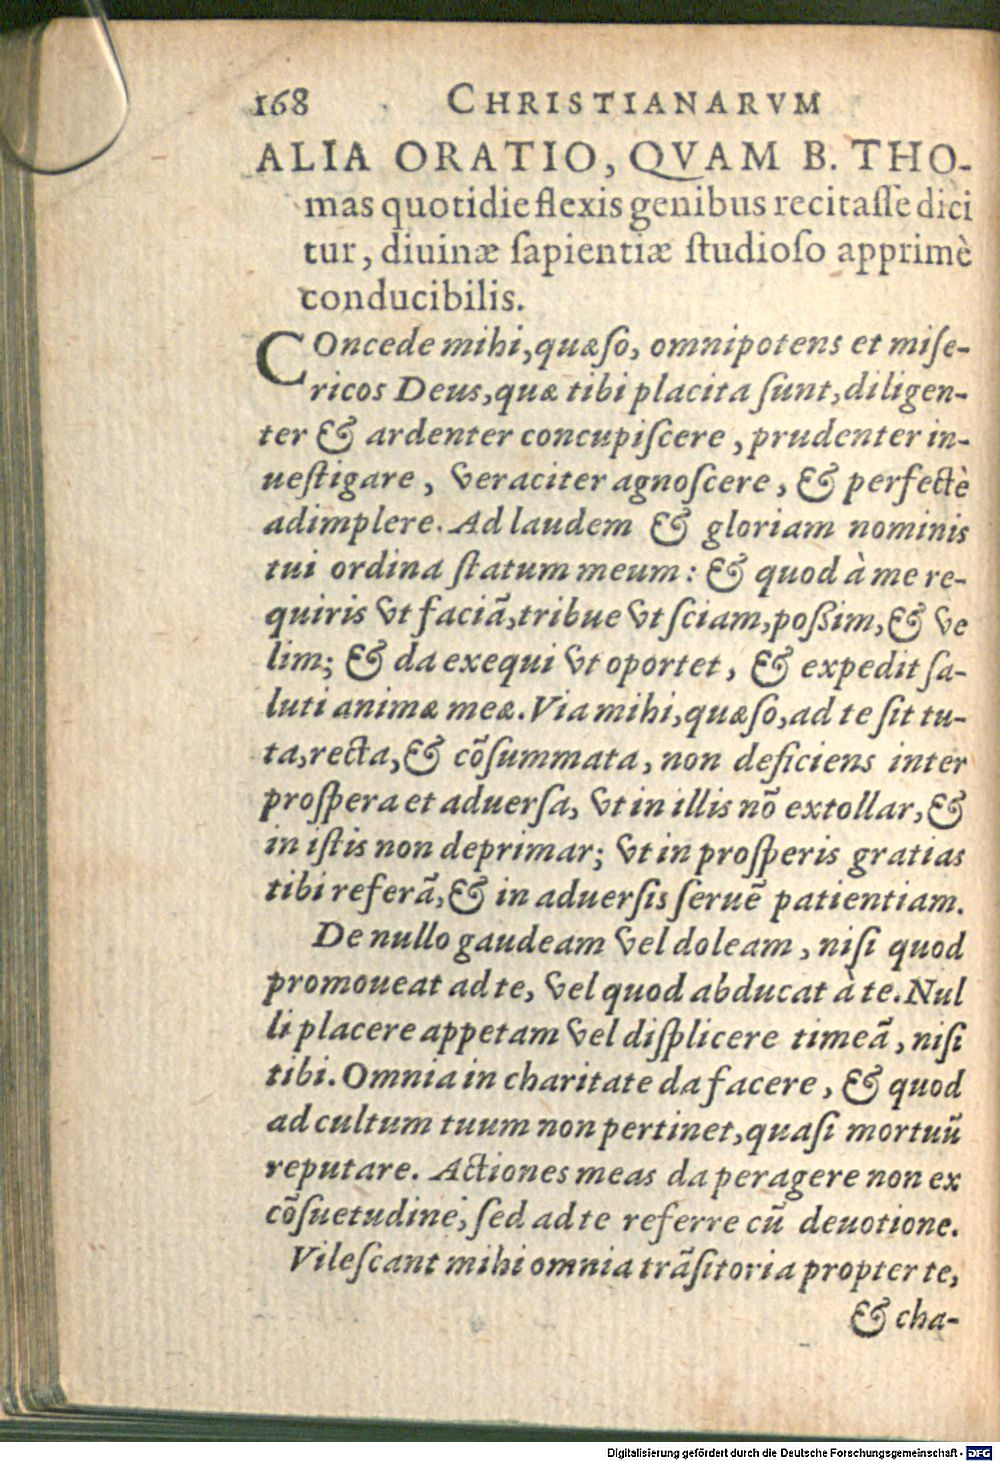 168 CHRISTIANARVM
ALIA ORATIO, QVAM B. THO-
mas quotidie flexis genibus recitaſſe dici
tur, diuinæ ſapientiæ ſtudioſo apprimè
conducibilis.
COncede mihi, quæſo, omnipotens et miſe-
ricos Deus, quæ tibi placita ſunt, diligen-
ter & ardenter concupiſcere, prudenter in-
ueſtigare, veraciter agnoſcere, & perfectè
adimplere. Ad laudem & gloriam nominis
tui ordina ſtatum meum: & quod à me re-
quiris vt faciã, tribue vt ſciam, poßim, & ve
lim; & da exequi vt oportet, & expedit ſa-
luti animæ meæ. Via mihi, quæſo, ad te ſit tu-
ta, recta, & cõſummata, non deficiens inter
proſpera et aduerſa, vt in illis nõ extollar, &
in iſtis non deprimar; vt in proſperis gratias
tibi referã, & in aduerſis ſeruẽ patientiam.
De nullo gaudeam vel doleam, niſi quod
promoueat ad te, vel quod abducat à te. Nul
li placere appetam vel diſplicere timeã, niſi
tibi. Omnia in charitate da facere, & quod
ad cultum tuum non pertinet, quaſi mortuũ
reputare. Actiones meas da peragere non ex
cõſuetudine, ſed ad te referre cũ deuotione.
Vileſcant mihi omnia trãſitoria propter te,
& cha-
Digitalisierung gefördert durch die Deutsche Forschungsgemeinschaft - DFG